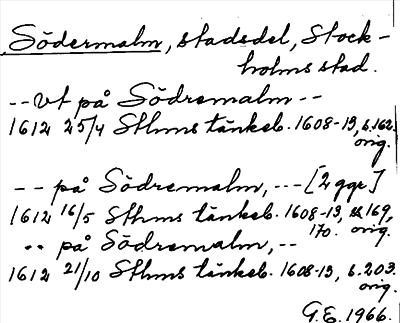 Södermalm, stadsdel, Stock-
holms stad.
-- vt på Södremalm --
1612 25/4 Sthms tänkeb. 1608-13, s.162.
orig.
-- på Södremalm, --- [2 ggr]
1612 16/5 Sthms tänkeb. 1608-13, ss 169,
170. orig.
-- på Södremalm, --
1612 21/10 Sthms tänkeb. 1608-13, s.203.
orig.
G.E. 1966.